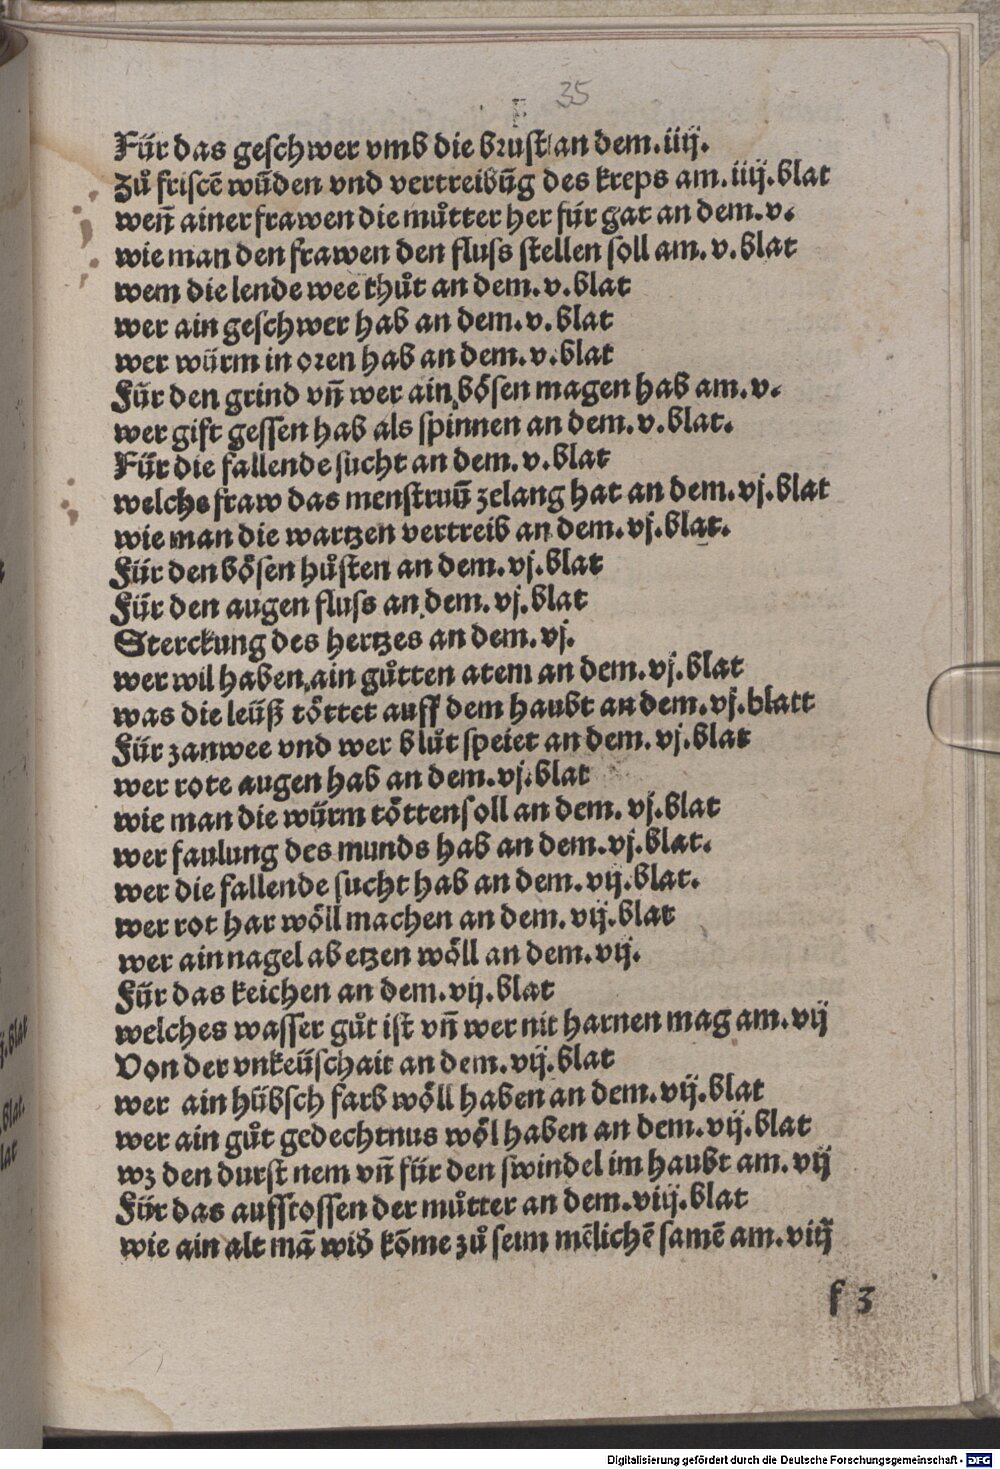 35
Für das geschwer vmb die brust an dem.iiij.
Zů friscē wūden vnd vertreibūg des kreps am.iiij.blat
weñ ainer frawen die můtter her für gat an dem.v.
wie man den frawen den fluss stellen soll am.v.blat
wem die lende wee thůt an dem.v.blat
wer ain geschwer hab an dem.v.blat
wer würm in oren hab an dem.v.blat
Für den grind vñ wer ain bösen magen hab am.v.
wer gift gessen hab als spinnen an dem.v.blat.
Für die fallende sucht an dem.v.blat
welchs fraw das menstruū zelang hat an dem.vj.blat
wie man die wartzen vertreib an dem.vj.blat.
Für den bösen hůsten an dem.vj.blat
Für den augen fluss an dem.vj.blat
Sterckung des hertzes an dem.vj.
wer wil haben ain gůtten atem an dem.vj.blat
was die leüß töttet auff dem haubt an dem.vj.blatt
Für zanwee vnd wer blůt speiet an dem.vj.blat
wer rote augen hab an dem.vj.blat
wie man die würm tötten soll an dem.vj.blat
wer faulung des munds hab an dem.vj.blat.
wer die fallende sucht hab an dem.vij.blat.
wer rot har wöll machen an dem.vij.blat
wer ain nagel ab etzen wöll an dem.vij.
Für das keichen an dem.vij.blat
welches wasser gůt ist vñ wer nit harnen mag am.vij
Von der vnkeüschait an dem.vij.blat
wer ain hübsch farb wöll haben an dem.vij.blat
wer ain gůt gedechtnus wöl haben an dem.vij.blat
wz den durst nem vñ für den swindel im haubt am.vij
Für das aufstossen der můtter an dem.viij.blat
wie ain alt mā wid̕ kōme zů seim mēlichē samē am.viij
f 3
j.blat
blat.
lat
Digitalisierung gefördert durch die Deutsche Forschungsgemeinschaft - DFG